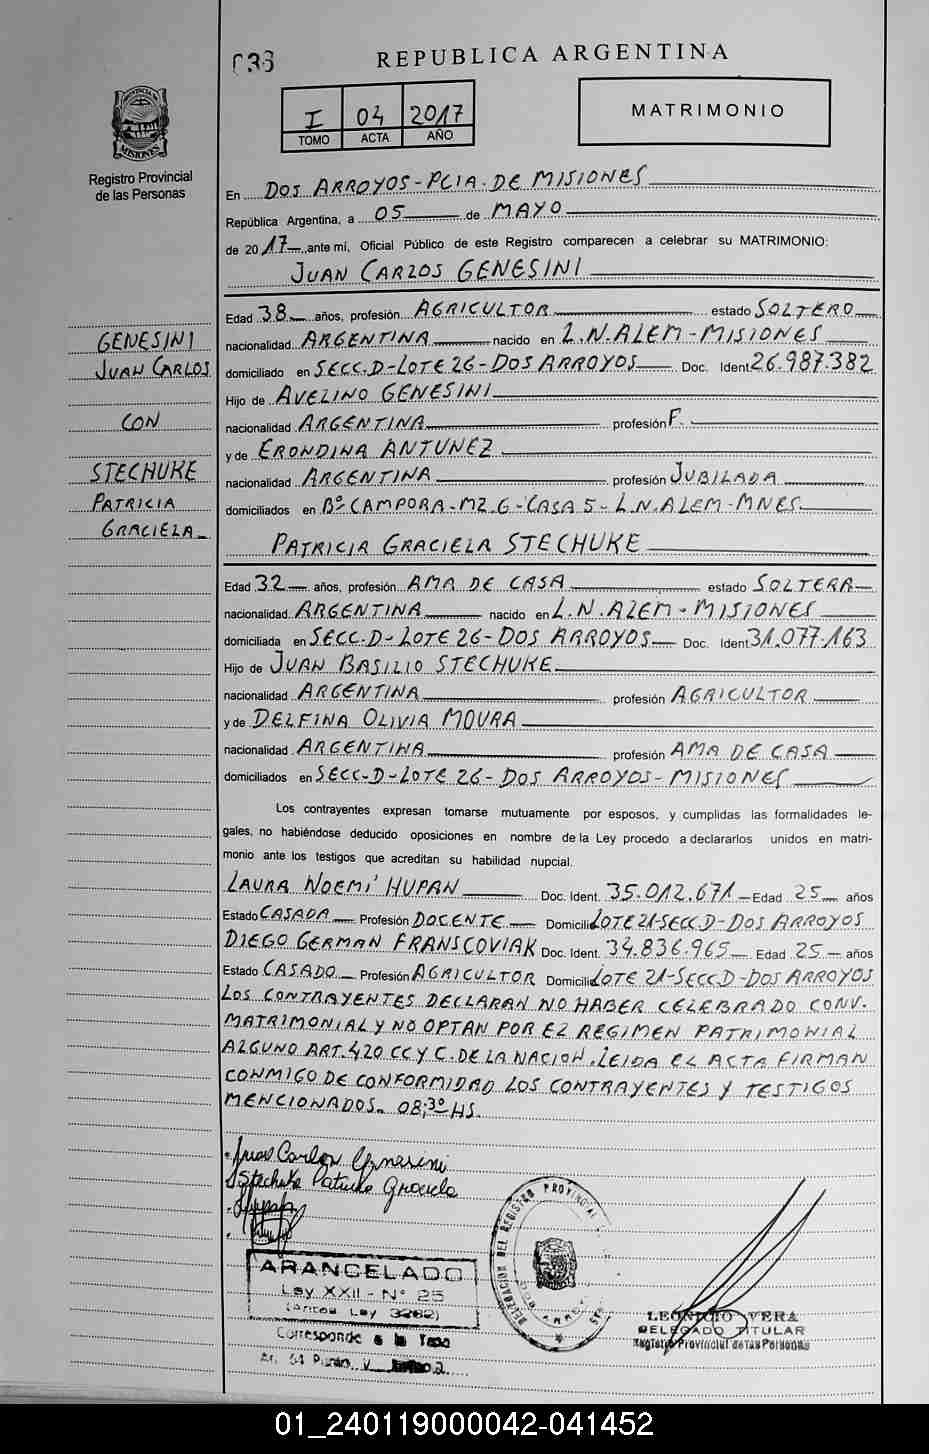 036
REPUBLICA ARGENTINA
PROVINCIA DE MISIONES
Registro Provincial
de las Personas
I 04 2017
TOMO ACTA AÑO
MATRIMONIO
En DOS ARROYOS - PCIA. DE MISIONES
República Argentina, a 05 de MAYO
de 2017, ante mí, Oficial Público de este Registro comparecen a celebrar su MATRIMONIO:
JUAN CARLOS GENESINI
Edad 38 años, profesión AGRICULTOR estado SOLTERO
nacionalidad ARGENTINA nacido en L.N.ALEM - MISIONES
domiciliado en SECC.D-LOTE 26-DOS ARROYOS Doc. Ident 26.987.382
Hijo de AVELINO GENESINI
nacionalidad ARGENTINA profesión F.
y de ERONDINA ANTUNEZ
nacionalidad ARGENTINA profesión JUBILADA
domiciliados en Bº CAMPORA-MZ.G-CASA 5-L.N.ALEM-MNES.
PATRICIA GRACIELA STECHUKE
Edad 32 años, profesión AMA DE CASA estado SOLTERA
nacionalidad ARGENTINA nacido en L.N.ALEM - MISIONES
domiciliada en SECC.D-LOTE 26-DOS ARROYOS Doc. Ident 31.077.163
Hijo de JUAN BASILIO STECHUKE
nacionalidad ARGENTINA profesión AGRICULTOR
y de DELFINA OLIVIA MOURA
nacionalidad ARGENTINA profesión AMA DE CASA
domiciliados en SECC-D-LOTE 26-DOS ARROYOS-MISIONES
Los contrayentes expresan tomarse mutuamente por esposos, y cumplidas las formalidades le-
gales, no habiéndose deducido oposiciones en nombre de la Ley procedo a declararlos unidos en matri-
monio ante los testigos que acreditan su habilidad nupcial.
LAURA NOEMI HUPAN Doc. Ident. 35.012.671 Edad 25 años
Estado CASADA Profesión DOCENTE Domicili LOTE 21-SECC D-DOS ARROYOS
DIEGO GERMAN FRANSCOVIAK Doc. Ident. 34.836.965 Edad 25 años
Estado CASADO Profesión AGRICULTOR Domicili LOTE 21-SECC.D-DOS ARROYOS
LOS CONTRAYENTES DECLARAN NO HABER CELEBRADO CONV.
MATRIMONIAL Y NO OPTAN POR EL REGIMEN PATRIMONIAL
ALGUNO ART.420 CC Y C. DE LA NACION. LEIDA EL ACTA FIRMAN
CONMIGO DE CONFORMIDAD LOS CONTRAYENTES Y TESTIGOS
MENCIONADOS. 08:30 HS.
GENESINI
JUAN CARLOS
CON
STECHUKE
PATRICIA
GRACIELA
Juan Carlos Genesini
Stechuke Patricia Graciela
ARANCELADO
Ley XXII - Nº 25
(Antes Ley 3262)
Corresponde a la Tasa
DELEGACION DEL REGISTRO PROVINCIAL
LEONICIO VERA
DELEGADO TITULAR
Registro Provincial de las Personas
01_240119000042-041452